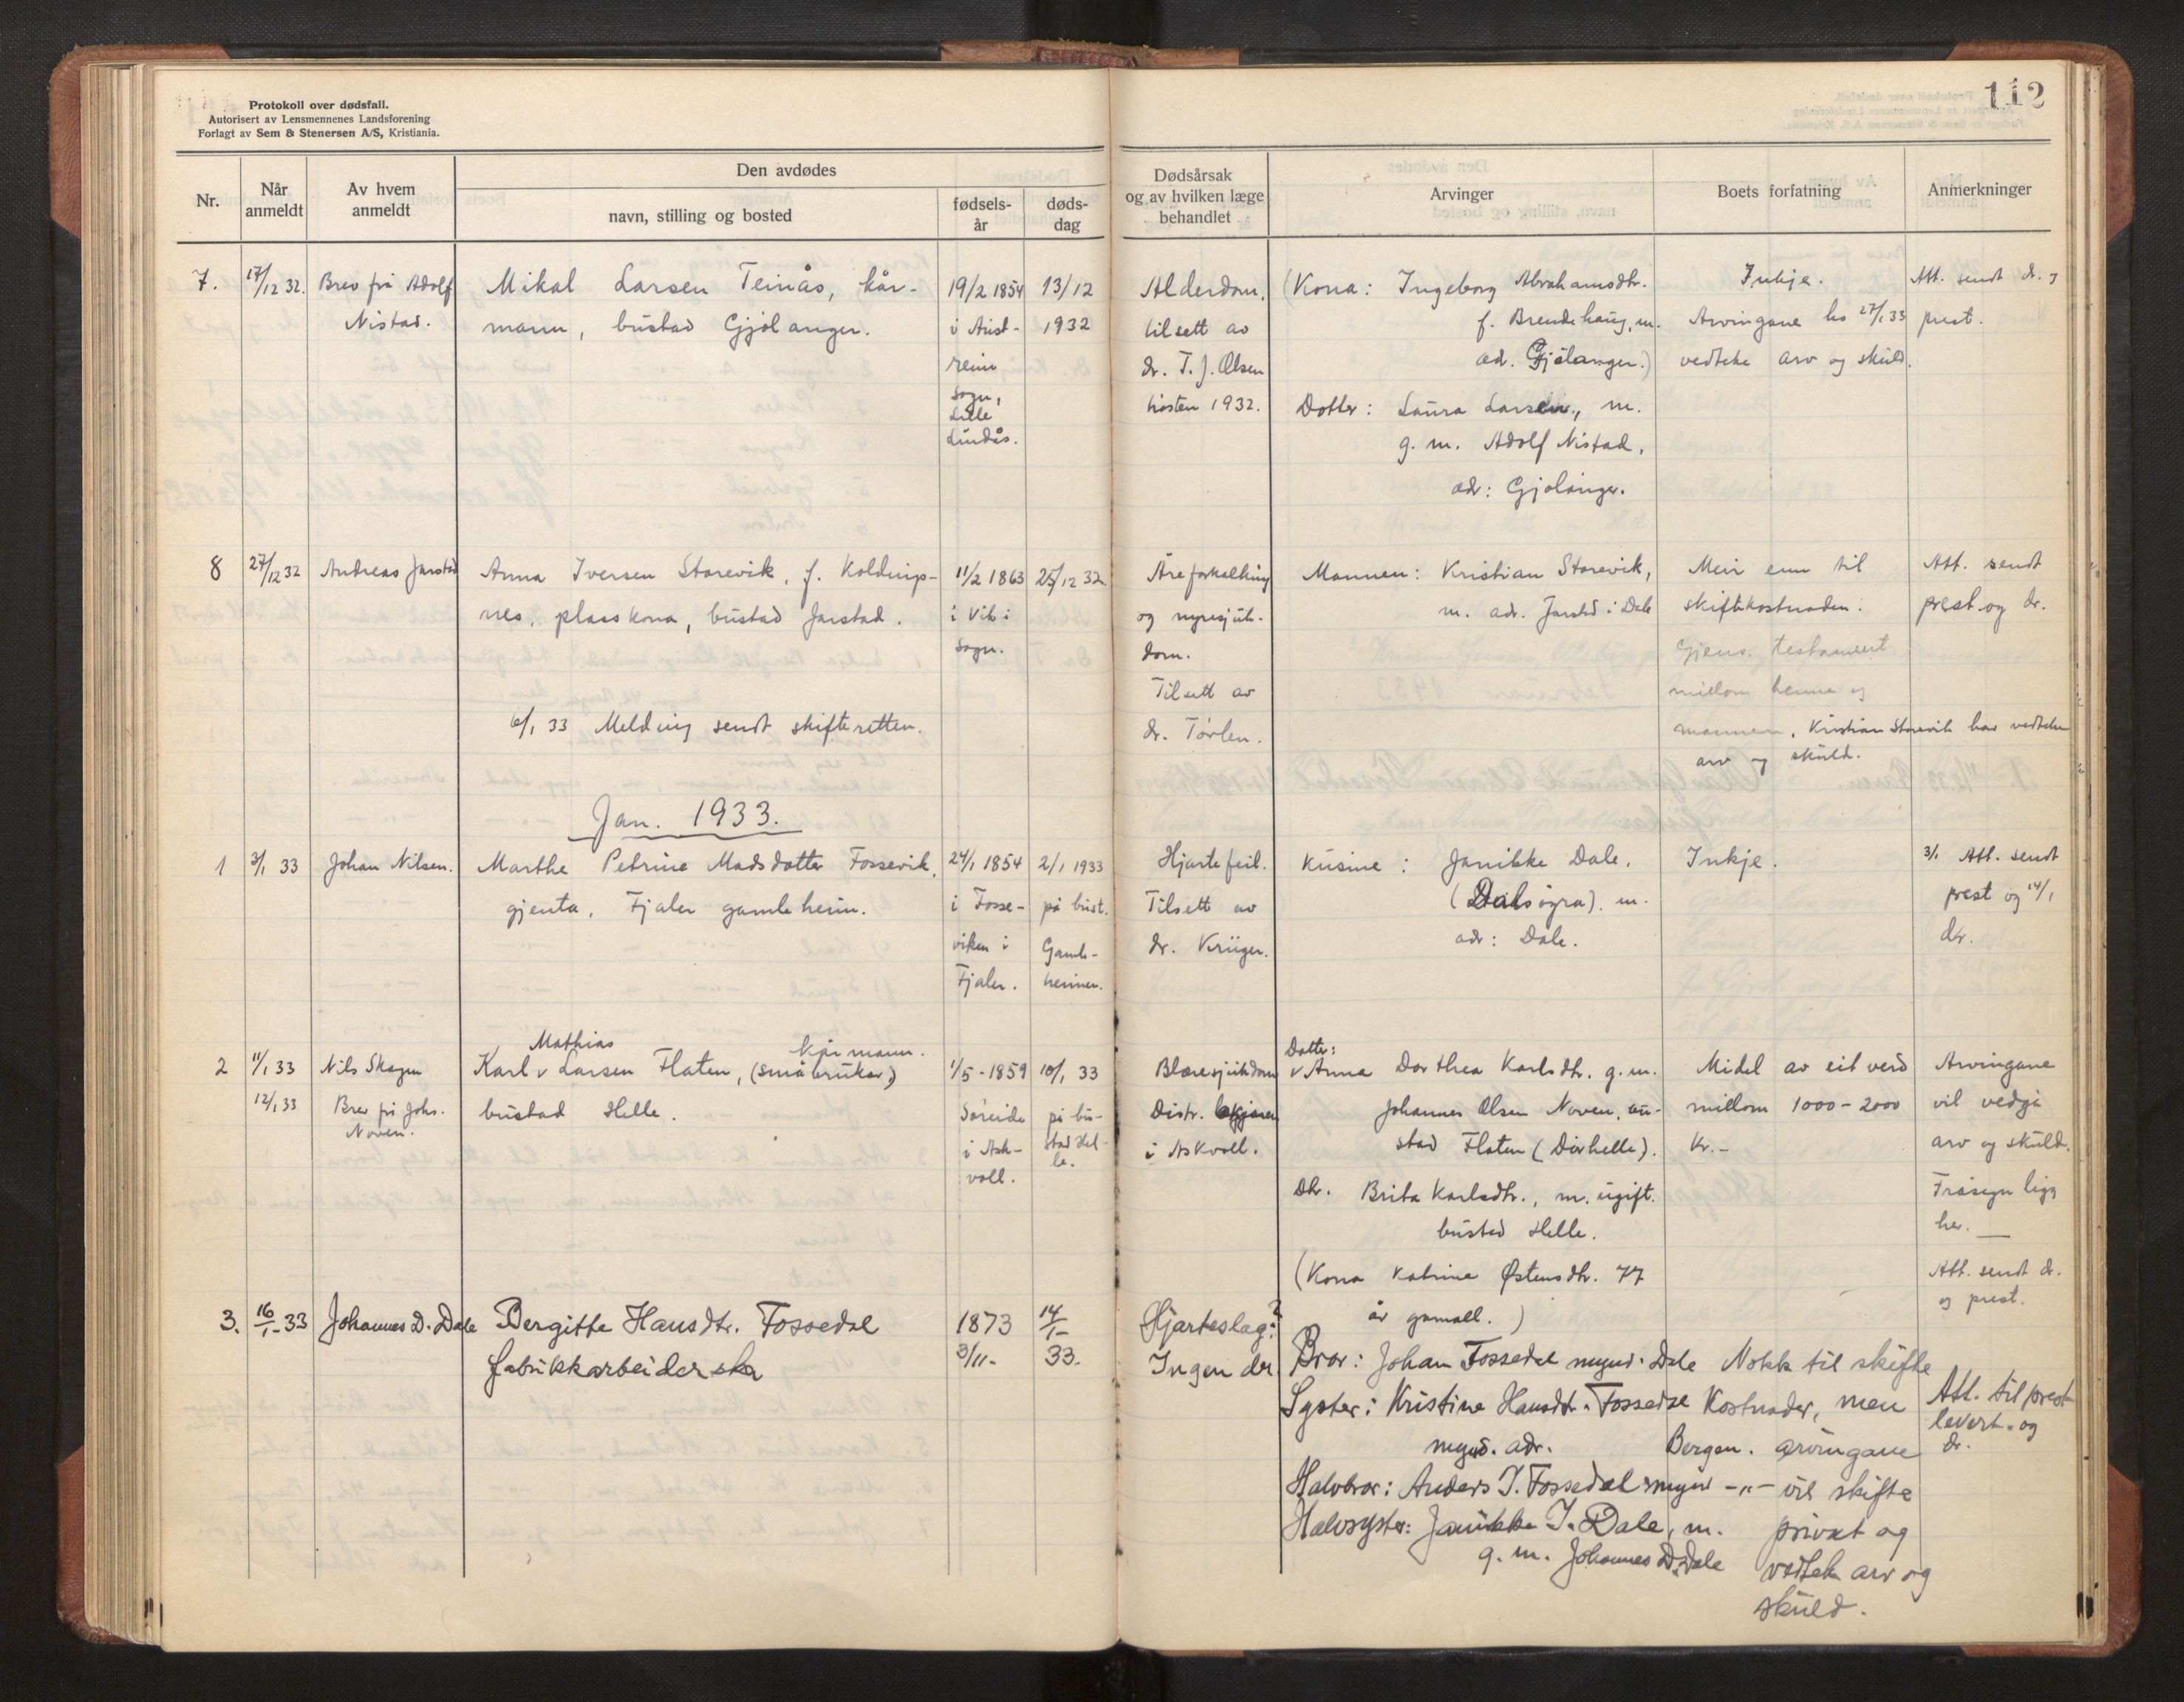 Protokoll over dødsfall.
Autorisert av Lensmennenes Landsforening
Forlagt av Sem & Stenersen A/S, Kristiania.
112
Nr.
Når anmeldt
Av hvem anmeldt
Den avdødes
navn, stilling og bosted
fødsels-
år
døds-
dag
Dødsårsak
og av hvilken læge
behandlet
Arvinger
Boets forfatning
Anmerkninger
7.
17/12 32.
Brev frå Adolf
Nistad.
Mikal Larsen Teinås, kår-
mann, bustad Gjølanger.
19/2 1854
i Aust-
rein
sogn,
Lille
Lindås.
13/12
1932
Alderdom,
tilsett av
dr. T. J. Olsen
hösten 1932.
(Kona: Ingeborg Abrahamsdtr.
f. Brendehaug, m.
ad. Gjölanger.)
Dotter: Laura Larsen, m.
g. m. Adolf Nistad,
adr: Gjolanger.
Inkje.
Arvingane hs 27/1 33
vedteke arv og skuld.
Att. sendt dr. og
prest.
8
27/12 32
Andreas Jarstad
Anna Iversen Storevik, f. Koldings-
nes, plasskona, bustad Jarstad.
6/1 33 Melding sendt skifteretten.
11/2 1863
i Vik i
Sogn.
25/12 32
Åreforkalking
og nyresjuk-
dom.
Tilsett av
dr. Torlen.
Mannen: Kristian Storevik,
m. adr. Jarstad i Dale
Meir enn til
skiftekostnaden.
Gjens. testament
millom henne og
mannen, Kristian Storevik har vedteke
arv og skuld.
Att. sendt
prest og dr.
Jan. 1933.
1
3/1 33
Johan Nilsen.
Marthe Petrine Madsdotter Fossevik,
gjenta, Fjaler gamleheim.
24/1 1854
i Fosse-
viken i
Fjaler.
2/1 1933
på bust.
Gamle-
heimen.
Hjartefeil.
Tilsett av
dr. Krüger.
Kusine: Janikke Dale,
(Dalsøyra). m.
adr: Dale.
Inkje.
3/1 Att. sendt
prest og 14/1
dr.
2
11/1 33
12/1 33
Nils Skogen
Brev frå Johs.
Noven.
Mathias kårmann.
Karl v Larsen Flaten, (småbruker)
bustad Helle.
1/5 - 1859
Søreide
i Ask-
voll.
10/1 33
på bu-
stad Hel-
le.
Blæresjukdom
Distr. lækjaren
i Askvoll.
Dotter:
v Anna Dorthea Karlsdtr. g. m.
Johannes Olsen Noven, bu-
stad Flaten (Dørhelle).
Dtr. Brita Karlsdtr., m. ugift.
bustad Helle.
(Kona Katrine Østensdtr. 77
år gamall.)
Midel av eit verd
millom 1000 - 2000
kr.-
Arvingane
vil vedgå
arv og skuld.
Fråsegn ligg
her.
Att. sendt dr.
og prest.
3.
16/1 - 33
Johannes D. Dale
Bergitte Hansdtr. Fossedal
fabrikkarbeiderska
1873
3/11-
14/1-
33.
Hjarteslag?
Ingen dr.
Bror: Johan Fossedal mynd. Dale
Syster: Kristine Hansdtr. Fossedal
mynd. adr. Bergen.
Halvbror: Anders J. Fossedal mynd -"-
Halvsyster: Janikke J. Dale, m.
g. m. Johannes D. Dale
Nokk til skifte
kostnader, men
arvingane
vil skifte
privat og
vedtek arv og
skuld.
Att. til prest
levert og
dr.